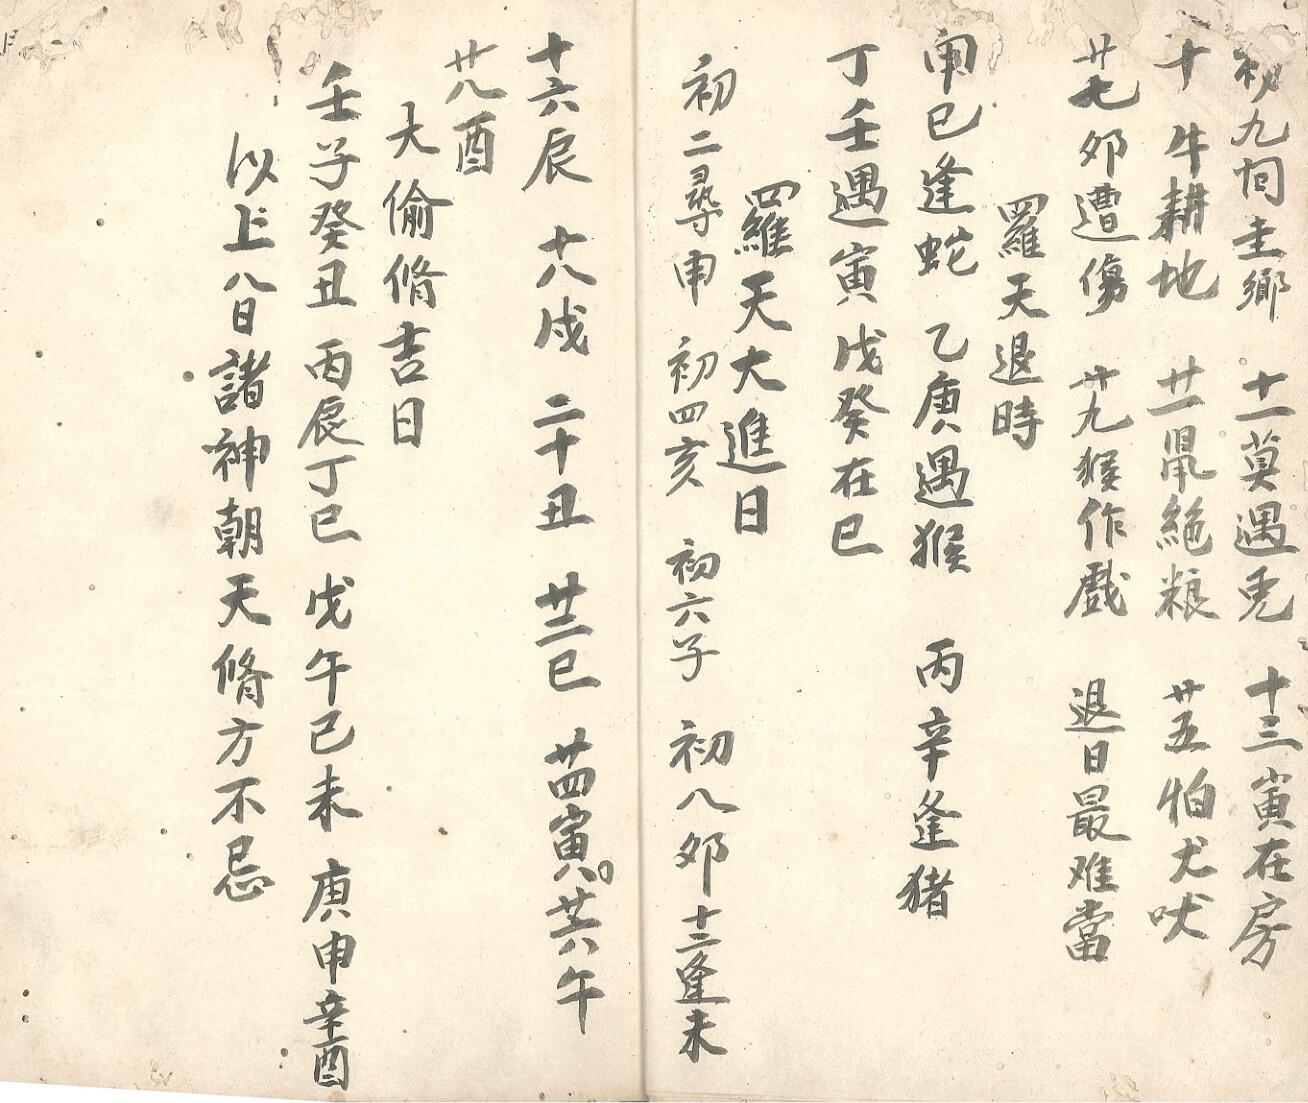 初九徊圭鄉 十一莫遇兎 十三寅在房
十牛耕地 廿一鼠絕粮 廿五怕犬吠
廿七卯遭傷 廿九猴作戲 退日最难當
羅天退時
甲巳逢蛇 乙庚遇猴 丙辛逢猪
丁壬遇寅 戊癸在巳
羅天大進日
初二尋申 初四亥 初六子 初八卯 十二逢未
十六辰 十八戌 二十丑 廿二巳 廿四寅 廿六午
廿八酉
大偷脩吉日
壬子癸丑 丙辰丁巳 戊午己未 庚申辛酉
以上八日諸神朝天脩方不忌